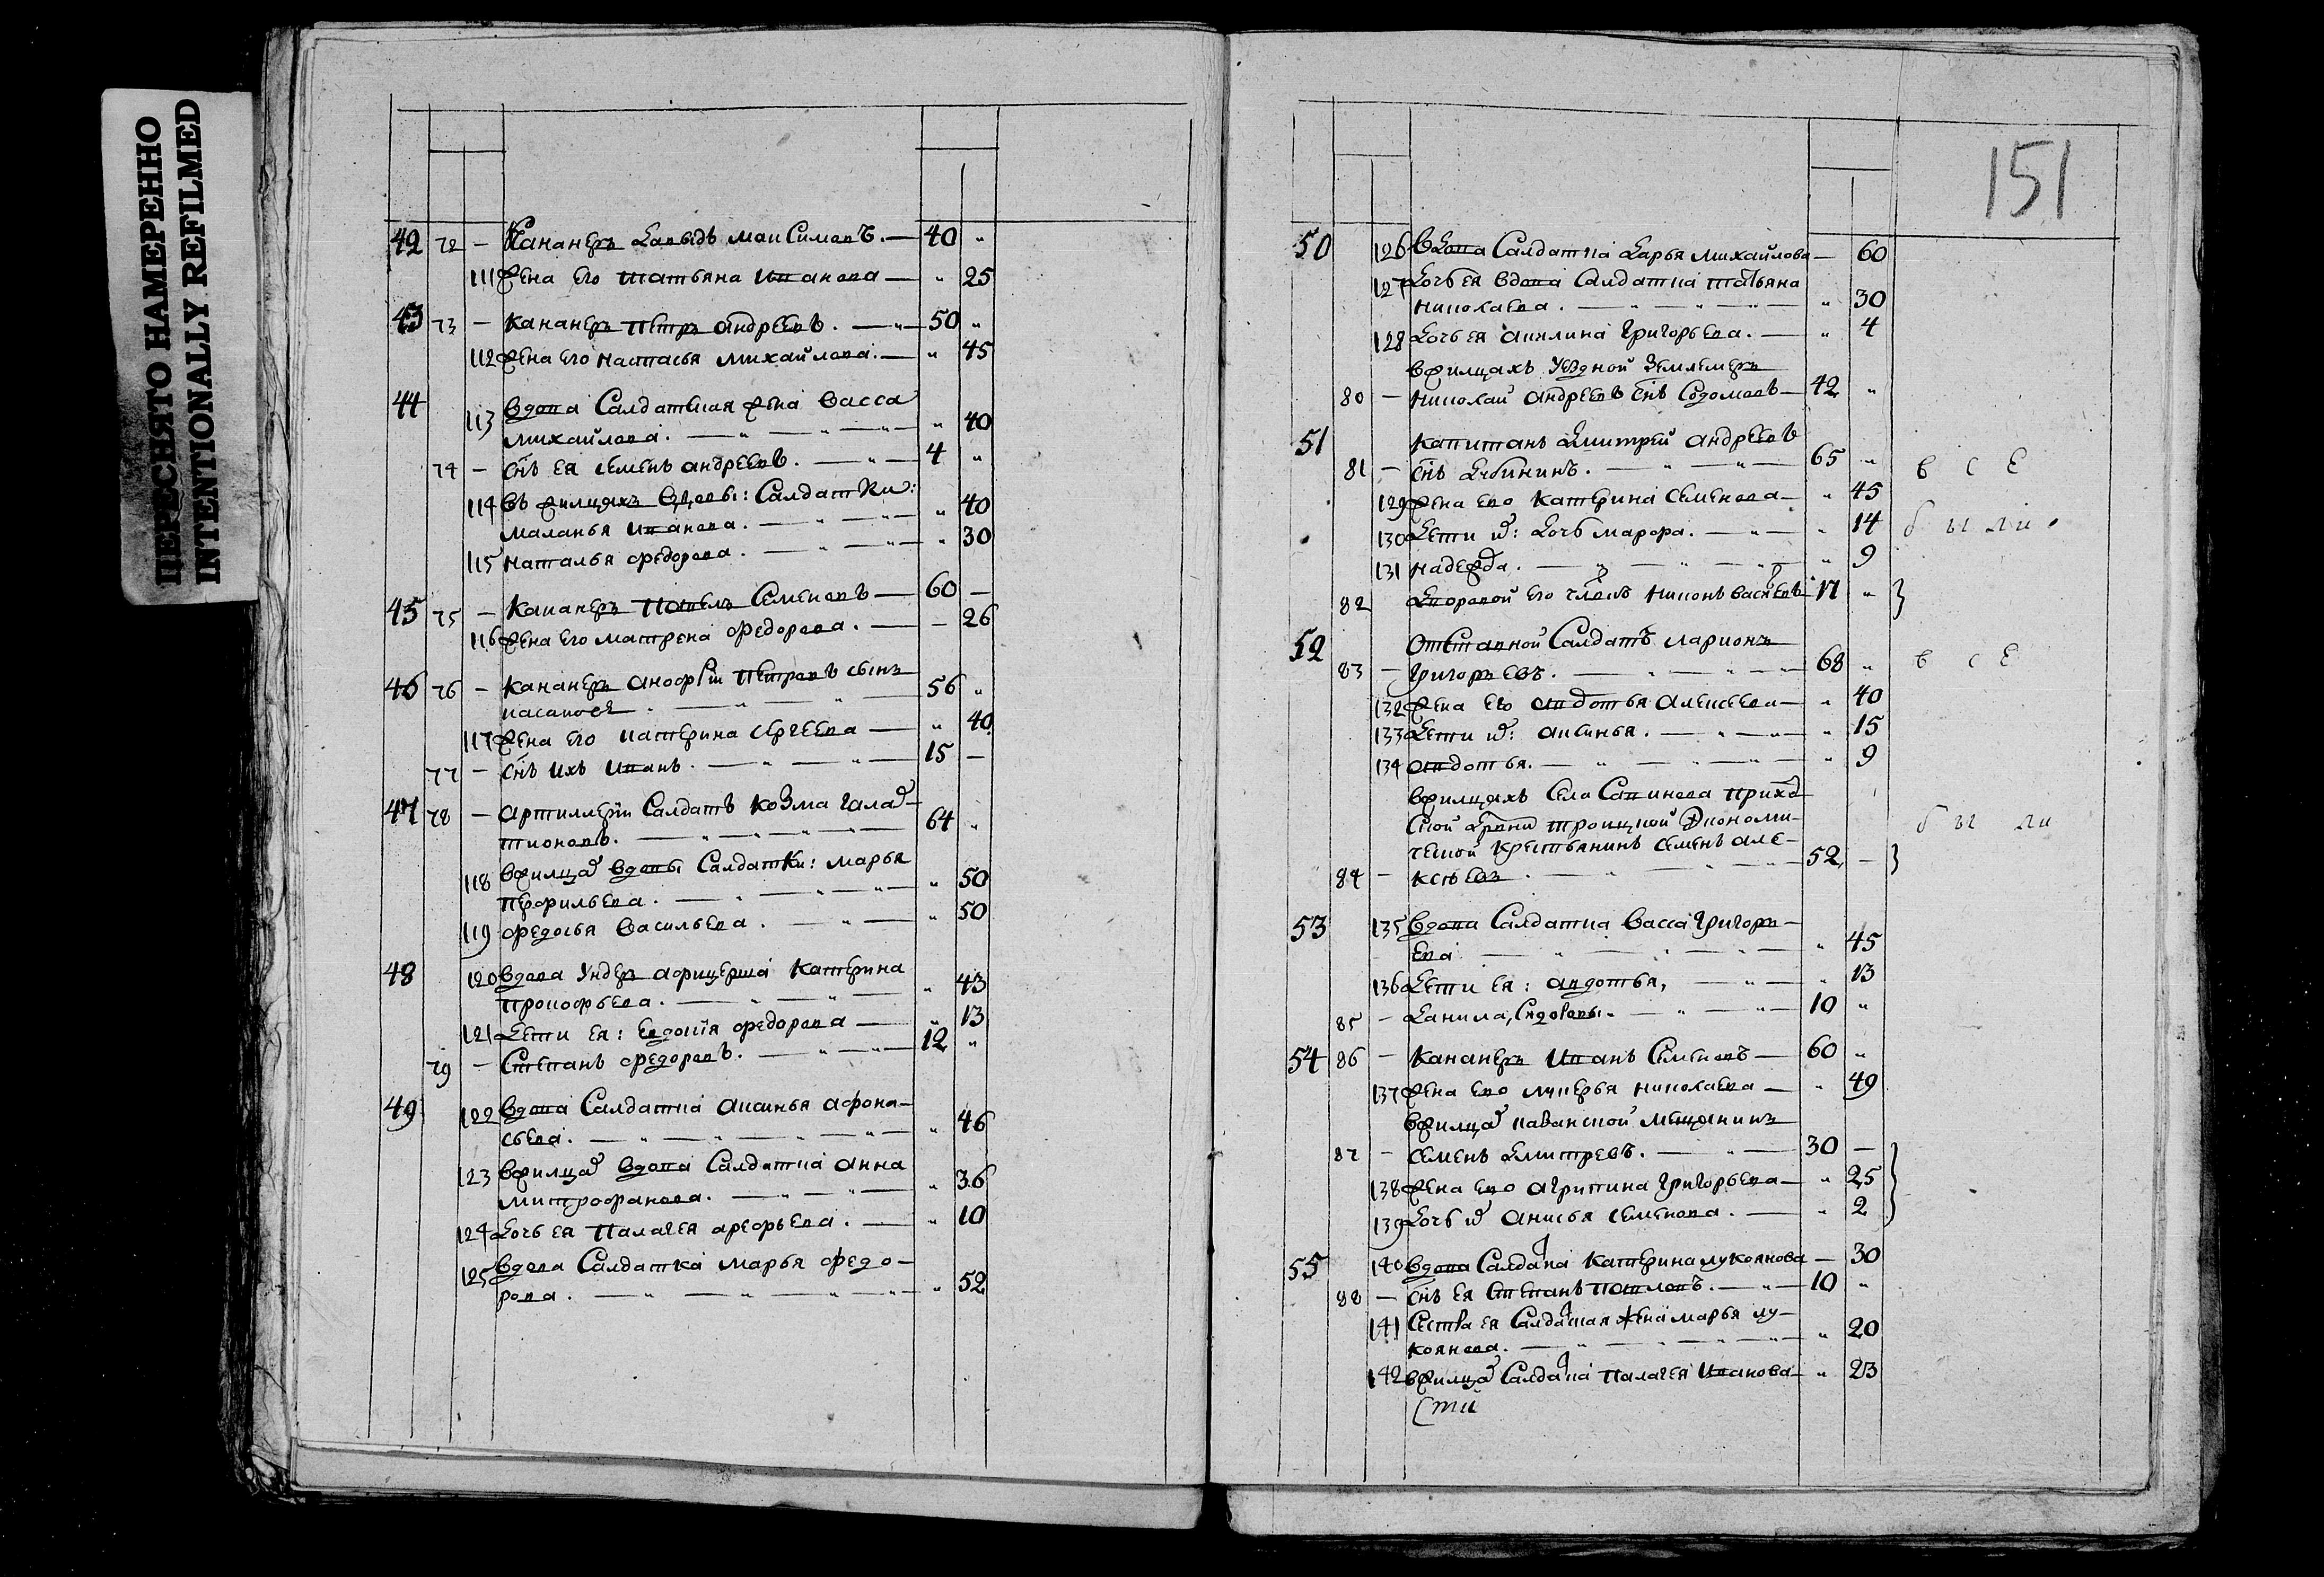 ПЕРЕСНЯТО НАМЕРЕННО
INTENTIONALLY REFILMED
42 72 — Кананеръ Давыдъ Максимовъ. — 40 „
111 Жена его Татьяна Иванова — „ 25
43 73 — Кананеръ Петръ Андреевъ. — „ — 50 „
112 Жена его Настасья Михайлова. — „ 45
44 113 Вдова Салдатская жена Васса
Михайлова. — „ — „ — „ — „ 40
74 — Снъ ея Семенъ Андреевъ. — „ — 4 „
114 Въ жилцахъ вдовы: Салдатки:
Маланья Иванова. — „ — „ — „ 40
115 Наталья Федорова. — „ — „ — „ 30
45 75 — Кананеръ Павелъ Семеновъ — 60 —
116 Жена его Матрена Федорова. — — 26
46 76 — Кананеръ Анофрій Петровъ сынъ
— „ — „ — 56 „
117 Жена его Катерина Сергеева — „ 40
77 — Снъ ихъ Иванъ. — „ — „ — 15 —
47 78 — Артиллеріи Салдатъ Козма Гала-
тионовъ. — „ — „ — „ — 64 „
118 Вжилца вдовы Салдатки: Марья
Перфильева. — „ — „ — „ — „ 50
119 Федосья Васильева. — „ — „ 50
48 120 Вдова Ундеръ афицерша Катерина
Прокофьева. — „ — „ — „ 43
121 Дети ея: Евдокія Федорова — „ 13
79 — Степанъ Федоровъ. — „ — „ — 12 „
49 122 Вдова Салдатка Аксинья Афона-
сьева. — „ — „ — „ — „ — „ 46
123 Вжилца вдова Салдатка Анна
Митрофанова. — „ — „ — „ 36
124 Дочь ея Палагея — „ 10
125 Вдова Салдатка Марья Федо-
рова. — „ — „ — „ — „ — „ 52
151
50 126 Вдова Салдатка Дарья Михайлова — 60
127 Дочь ея вдова Салдатка Татьяна
Николаева. — „ — „ — „ — „ 30
128 Дочь ея Акилина Григорьева. — „ 4
вжилцахъ Уездной Землемеръ
80 — Николай Андреевъ снъ — 42 „
51 Капитанъ Дмитрей Андреевъ
81 — снъ — „ — „ — 65 „ в с е
129 Жена его Катерина Семенова — „ 45
130 Дети и: Дочь Марфа. — „ — „ 14 б ы ли
131 Надежда. — „ — „ — „ — „ 9
82 Дворовой его члвкъ Никонъ Василевъ 17 „ }
52 Отставной Салдатъ Ларионъ
83 — Григорьевъ. — „ — „ — „ — 68 „ в с е
132 Жена его Авдотья Алексеева — „ 40
133 Дети и: Аксинья. — „ — „ — „ 15
134 Авдотья. — „ — „ — „ — „ 9
вжилцахъ Села Савинова Приход
ской Троицкой Экономи- б ы ли
ческой Крестьянинъ Семенъ Але-
84 — ксѣевъ. — „ — „ — 52 — }
53 135 Вдова Салдатка Васса Григорь-
ева — „ — „ — „ — „ 45
136 Дети ея: Авдотья, — „ — „ 13
85 — Данила, — „ — „ — 10 „
54 86 — Кананеръ Иванъ Семеновъ — 60 „
137 Жена его Лукерья Николаева — „ 49
вжилца Казанской Мещанинъ
87 — Семенъ Дмитревъ. — „ — 30 —
138 Жена его Агрипина Григорьева — „ 25 }
139 Дочь и Анисья Семенова. — „ 2
55 140 Вдова Салдатка Катерина Лукоянова — 30
88 — Снъ ея Степанъ Павловъ. — „ — 10 „
141 Сестра ея Салдатская жена Марья Лу-
коянова. — „ — „ — „ — „ 20
142 вжилца Салдатка Палагея Иванова — „ 23